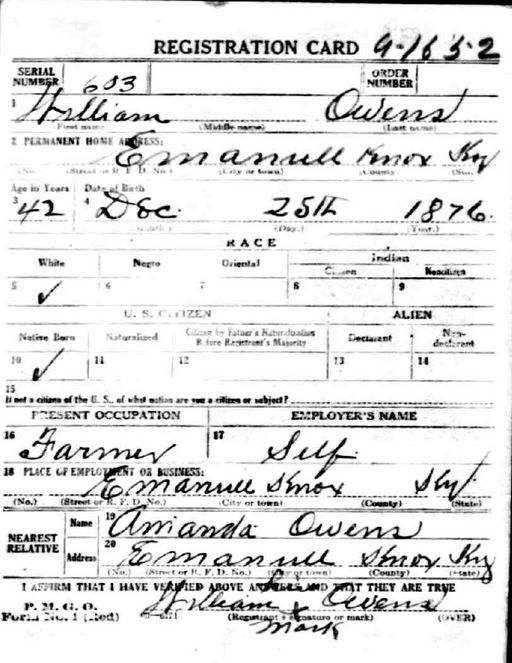 REGISTRATION CARD 9-165-2
SERIAL NUMBER 603 ORDER NUMBER
1 William Owens
First name (Middle name) (Last name)
2 PERMANENT HOME ADDRESS:
Emanuell Knox Ky
(No.) (Street or R. F. D. No.) (City or town) (County) (State)
Age in Years Date of Birth
3 42 4 Dec. 25th 1876.
(Month.) (Day.) (Year.)
RACE
White Negro Oriental Indian
Citizen Noncitizen
5 ✓ 6 7 8 9
U. S. CITIZEN ALIEN
Native Born Naturalized Citizen by Father's Naturalization Before Registrant's Majority Declarant Non-declarant
10 ✓ 11 12 13 14
15
If not a citizen of the U. S., of what nation are you a citizen or subject?
PRESENT OCCUPATION EMPLOYER'S NAME
16 Farmer 17 Self
18 PLACE OF EMPLOYMENT OR BUSINESS:
Emanuell Knox Ky
(No.) (Street or R. F. D. No.) (City or town) (County) (State)
NEAREST RELATIVE Name 19 Amanda Owens
Address 20 Emanuell Knox Ky
(No.) (Street or R. F. D. No.) (City or town) (County) (State)
I AFFIRM THAT I HAVE VERIFIED ABOVE ANSWERS AND THAT THEY ARE TRUE
P. M. G. O.
Form No. 1 (Red) William his x Owens
(Registrant's signature or mark) (OVER)
mark